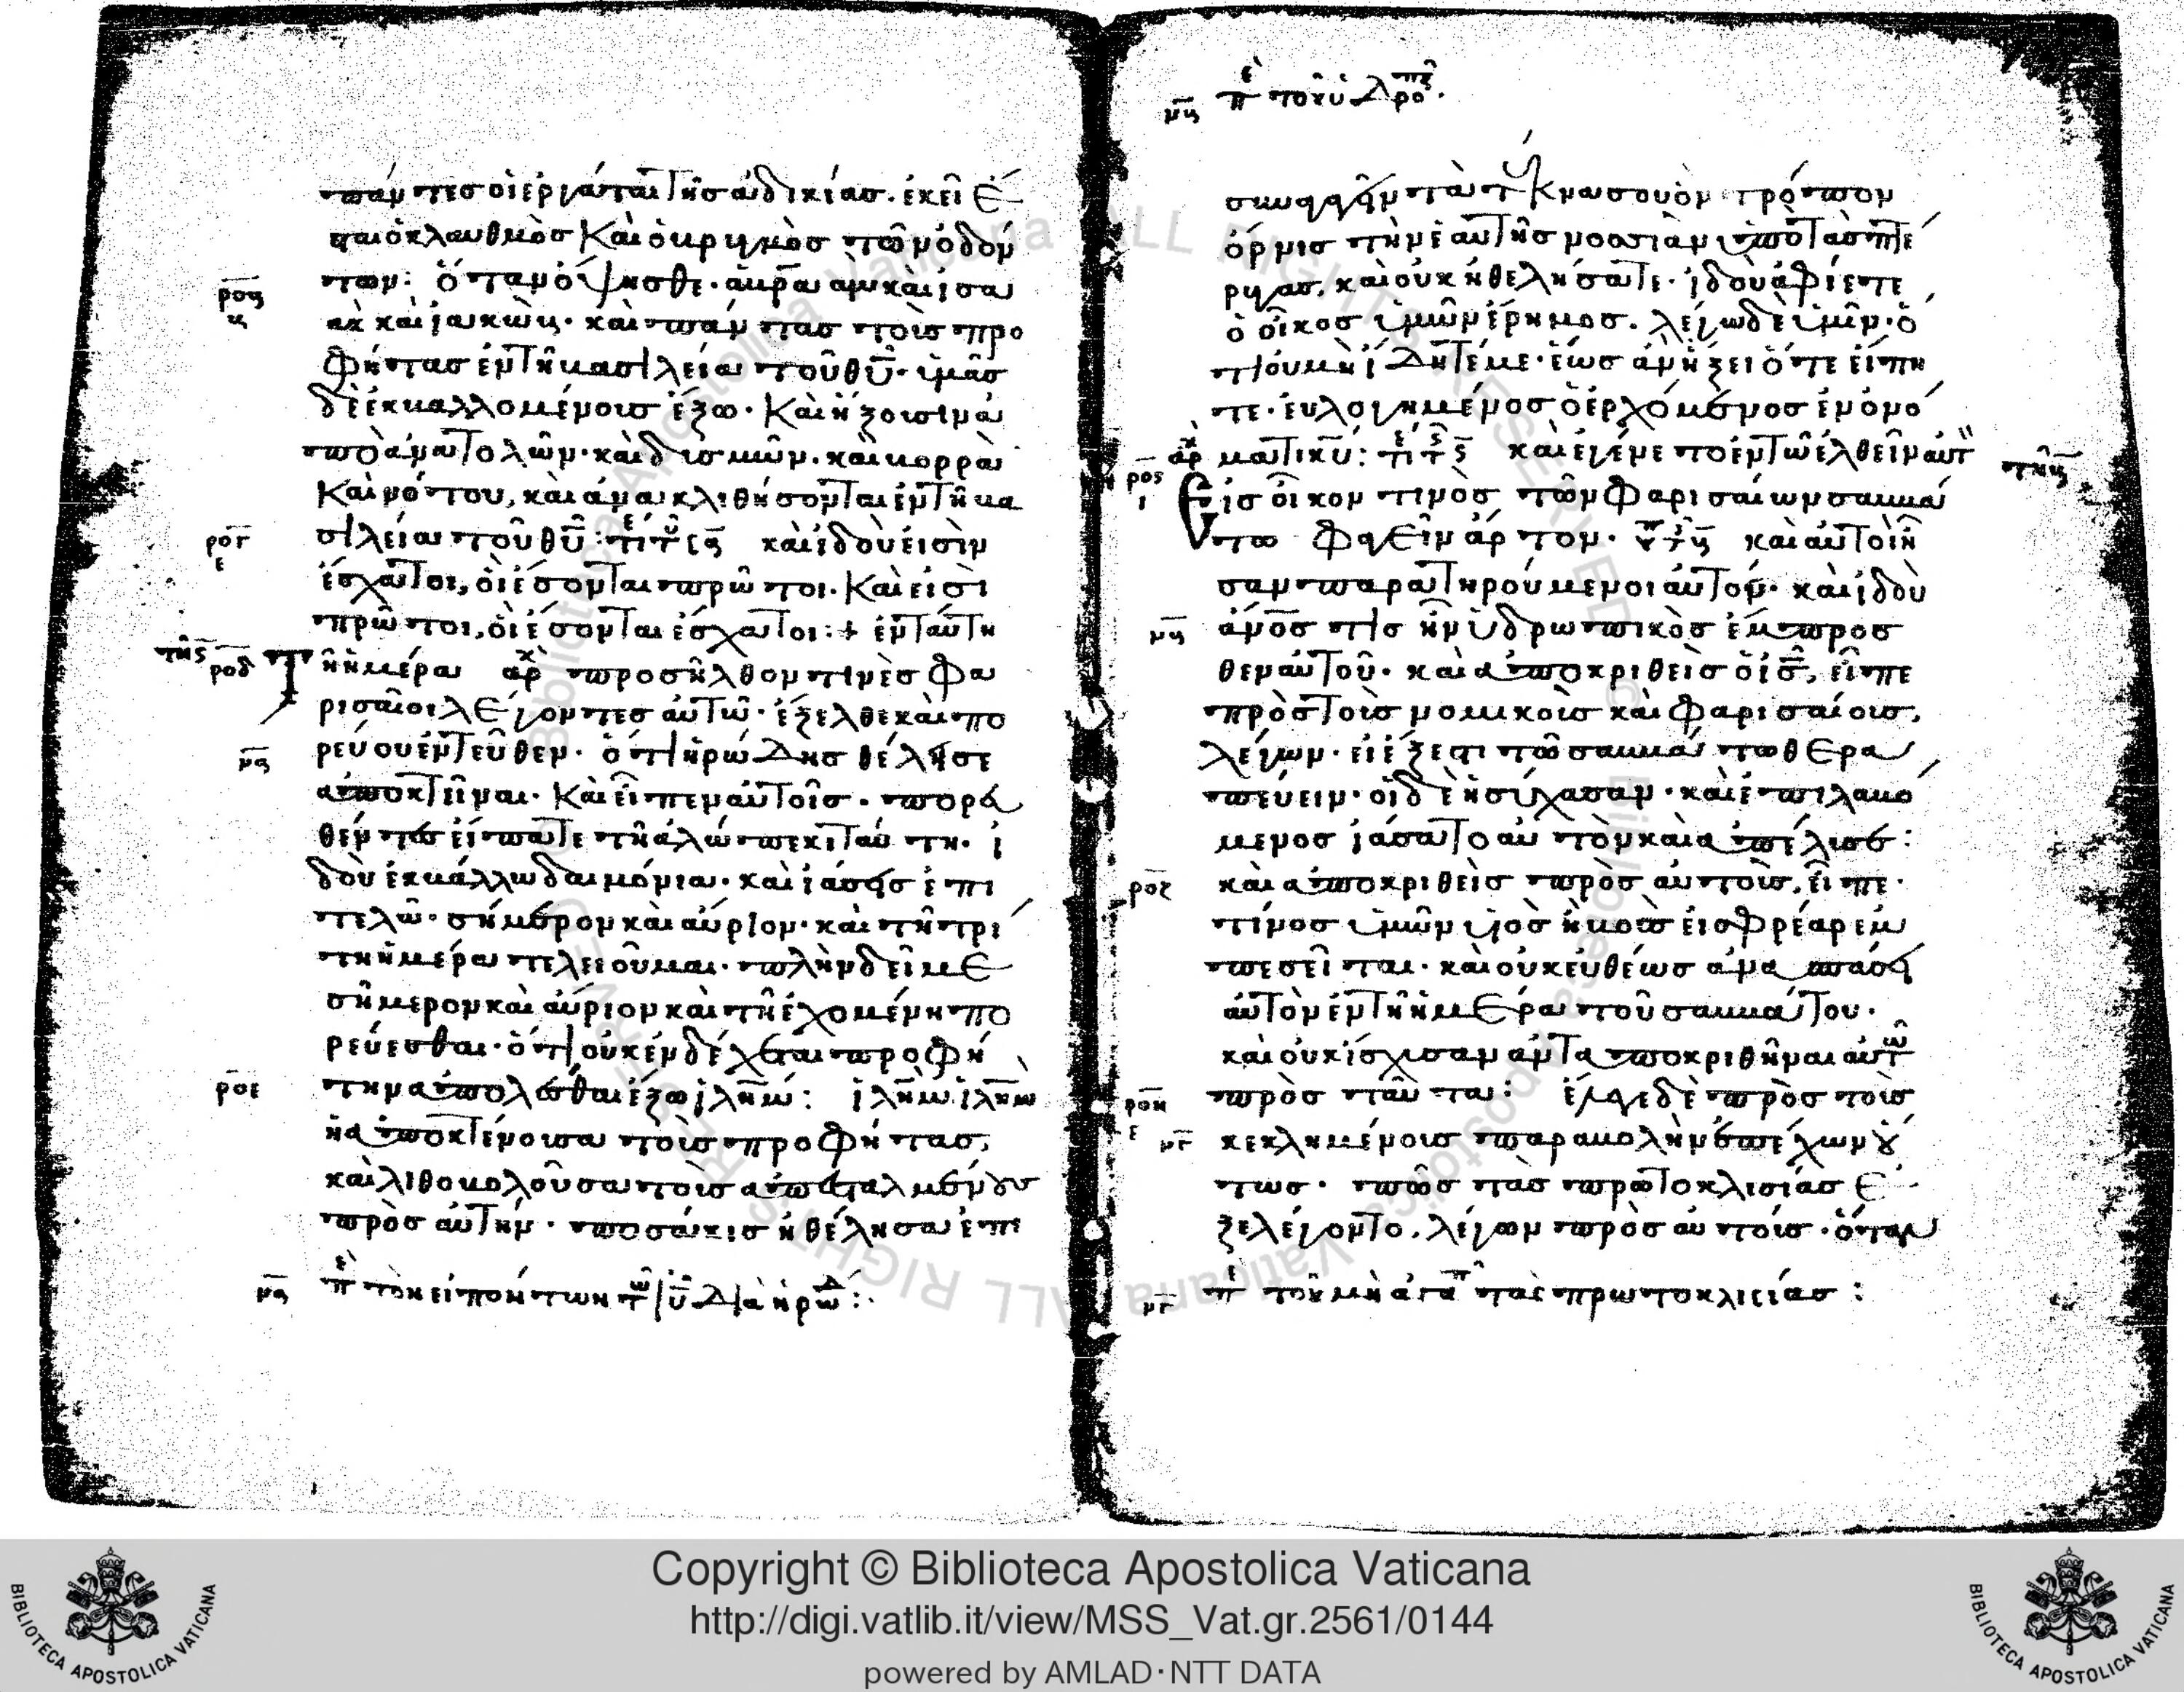 πάντες οἱ ἐργάται τῆς ἀδικίας. ἐκεῖ ἔ
σται ὁ κλαυθμὸς καὶ ὁ βρυγμὸς τῶν ὀδόν
των: ὅταν ὄψησθε. ἀβρααμ καὶ ἰσα
ὰκ καὶ ἰακώβ. καὶ πάντας τοὺς προ
φήτας ἐν τῆ βασιλεία τοῦ θῦ. ὑμᾶς
δὲ ἐκβαλλομένους ἔξω. καὶ ἥξουσιν ἀ
πὸ ἀνατολῶν. καὶ δυσμῶν. καὶ βορρᾶ
καὶ νότου, καὶ ἀνακλιθήσονται ἐν τῆ βα
σιλεία τοῦ θῦ: καὶ ἰδοὺ εἰσὶν
ἔσχατοι, οἱ ἔσονται πρῶτοι. καὶ εἰσὶ
πρῶτοι, οἱ ἔσονται ἔσχατοι: + ἐν ταύτη
ροδ τῆ ἡμέρα προσῆλθον τινὲς φα
ρισαῖοι λέγοντες αὐτῶ. ἔξελθε καὶ πο
ρεύου ἐντεῦθεν. ὅτι ἡρώδης θέλει σε
ἀποκτεῖναι. καὶ εἶπεν αὐτοῖς. πορευ
θέντες εἴπατε τῆ ἀλώπεκι ταύτη. ἰ
δοὺ ἐκβάλλω δαιμόνια. καὶ ἰάσεις ἐπι
τελῶ. σήμερον καὶ αὔριον. καὶ τῆ τρί
τη ἡμέρα τελειοῦμαι. πλὴν δεῖ με
σήμερον καὶ αὔριον καὶ τῆ ἐχομένη πο
ρεύεσθαι. ὅτι οὐκ ἐνδέχεται προφή
ροε την ἀπολέσθαι ἔξω ἰλημ: ἰλημ ἰλημ
ἡ ἀποκτένουσα τοὺς προφήτας,
καὶ λιθοβολοῦσα τοὺς ἀπεσταλμένους
πρὸς αὐτήν. ποσάκις ἠθέλησα ἐπι
συνάξαι τὰ τέκνα σου ὃν τρόπον
ὄρνις τὴν ἑαυτῆς νοσσιὰν ὑπὸ τὰς πτέ
ρυγας, καὶ οὐκ ἠθελήσατε. ἰδοὺ ἀφίεται
ὁ οἶκος ὑμῶν ἔρημος. λέγω δὲ ὑμῖν. ὅ
τι οὐ μὴ ἴδητέ με. ἕως ἂν ἥξει ὅτε εἴπη
τε. εὐλογημένος ὁ ἐρχόμενος ἐν ὀνό
ματι κυ: καὶ ἐγένετο ἐν τῶ ἐλθεῖν αὐτ
εἰς οἶκον τινὸς τῶν φαρισαίων σαββά
τω φαγεῖν ἄρτον. καὶ αὐτοὶ ἦ
σαν παρατηρούμενοι αὐτόν. καὶ ἰδοὺ
ἀνος τις ἦν ὑδρωπικὸς ἔμπροσ
θεν αὐτοῦ. καὶ ἀποκριθεὶς ὁ ις, εἶπε
πρὸς τοὺς νομικοὺς καὶ φαρισαίους,
λέγων. εἰ ἔξεστι τῶ σαββάτω θερα
πεύειν. οἱ δὲ ἡσύχασαν. καὶ ἐπιλαβό
μενος ἰάσατο αὐτὸν καὶ ἀπέλυσε:
καὶ ἀποκριθεὶς πρὸς αὐτοὺς, εἶπε.
τίνος ὑμῶν υἱὸς ἢ βοῦς εἰς φρέαρ ἐμ
πεσεῖται. καὶ οὐκ εὐθέως ἀνασπάσει
αὐτὸν ἐν τῆ ἡμέρα τοῦ σαββάτου.
καὶ οὐκ ἴσχυσαν ἀνταποκριθῆναι αὐτῶ
ροη πρὸς ταῦτα: ἔλεγε δὲ πρὸς τοὺς
κεκλημένους παραβολὴν ἐπέχων
πῶς τὰς πρωτοκλισίας ἐ
ξελέγοντο, λέγων πρὸς αὐτούς. ὅταν
Copyright © Biblioteca Apostolica Vaticana
http://digi.vatlib.it/view/MSS_Vat.gr.2561/0144
powered by AMLAD·NTT DATA
BIBLIOTECA APOSTOLICA VATICANA
BIBLIOTECA APOSTOLICA VATICANA